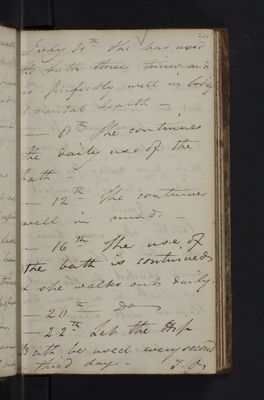 July 4th She has used
the bath three times and
is perfectly well in body
& mental health —
— 8th She continues
the daily use of the
bath —
— 12th She continues
well in mind. —
— 16th The use of
the bath is continued
& she walks out daily.
— 20th — Do —
— 22d Let the Hip
Bath be used every second
third day — J. O.